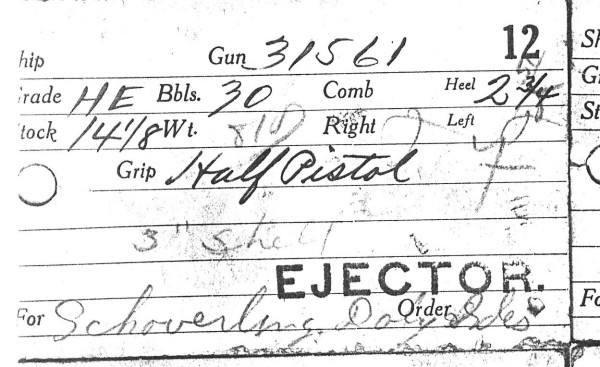 hip Gun 31561 12 Sh
rade HE Bbls. 30 Comb Heel 2 3/4 G
tock 14 1/8 Wt. Right Left St
Grip Half Pistol
3" Shell
EJECTOR.
For Schoverling Daly & Gales Order Fo